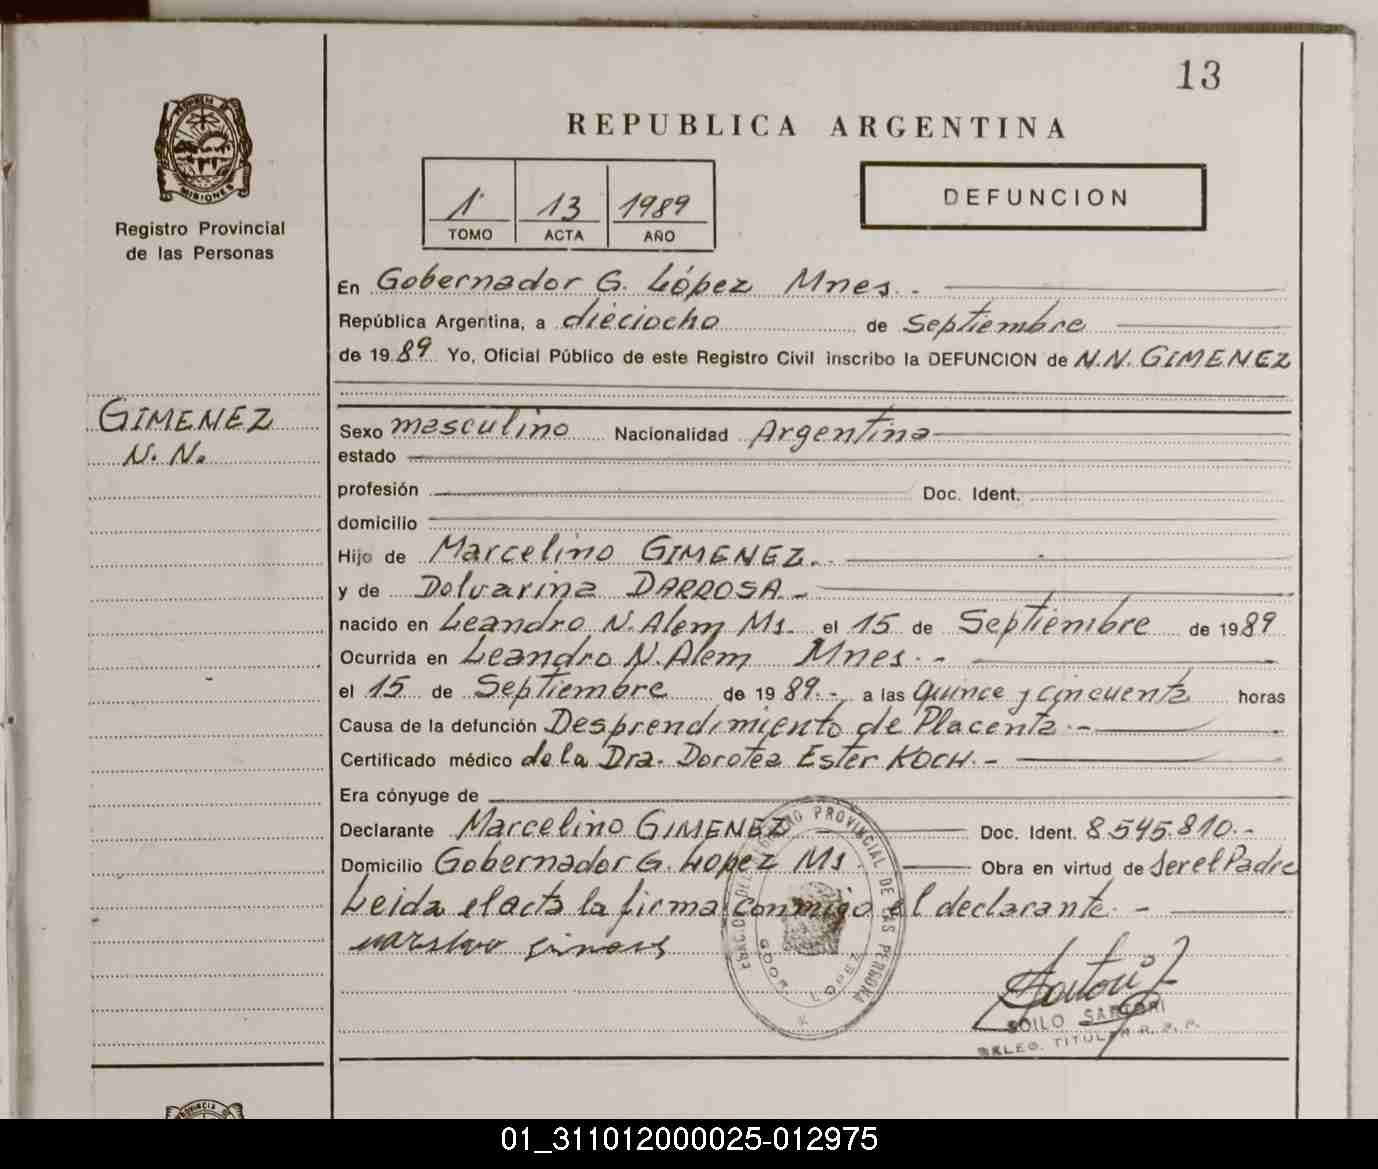 13
REPUBLICA ARGENTINA
PROVINCIA DE
MISIONES
Registro Provincial
de las Personas
1 13 1989
TOMO ACTA AÑO
DEFUNCION
En Gobernador G. López Mnes.-
República Argentina, a dieciocho de Septiembre
de 1989 Yo, Oficial Público de este Registro Civil inscribo la DEFUNCION de N.N. GIMENEZ
GIMENEZ
N. N.
Sexo masculino Nacionalidad Argentina
estado
profesión Doc. Ident.
domicilio
Hijo de Marcelino GIMENEZ.-
y de Dolvarina DARROSA.-
nacido en Leandro N. Alem Ms. el 15 de Septiembre de 1989
Ocurrida en Leandro N. Alem Mnes.-
el 15 de Septiembre de 1989.- a las quince y cincuenta horas
Causa de la defunción Desprendimiento de Placenta.-
Certificado médico de la Dra. Dorotea Ester KOCH.-
Era cónyuge de
Declarante Marcelino GIMENEZ Doc. Ident. 8.545.810.-
Domicilio Gobernador G. López Ms. Obra en virtud de Ser el Padre
Leida el acta la firma conmigo el declarante.-
REGISTRO PROVINCIAL DE LAS PERSONAS
GDOR. LOPEZ
SOILO SARTORI
DELEG. TITULAR R. P. P.
PROVINCIA DE
01_311012000025-012975